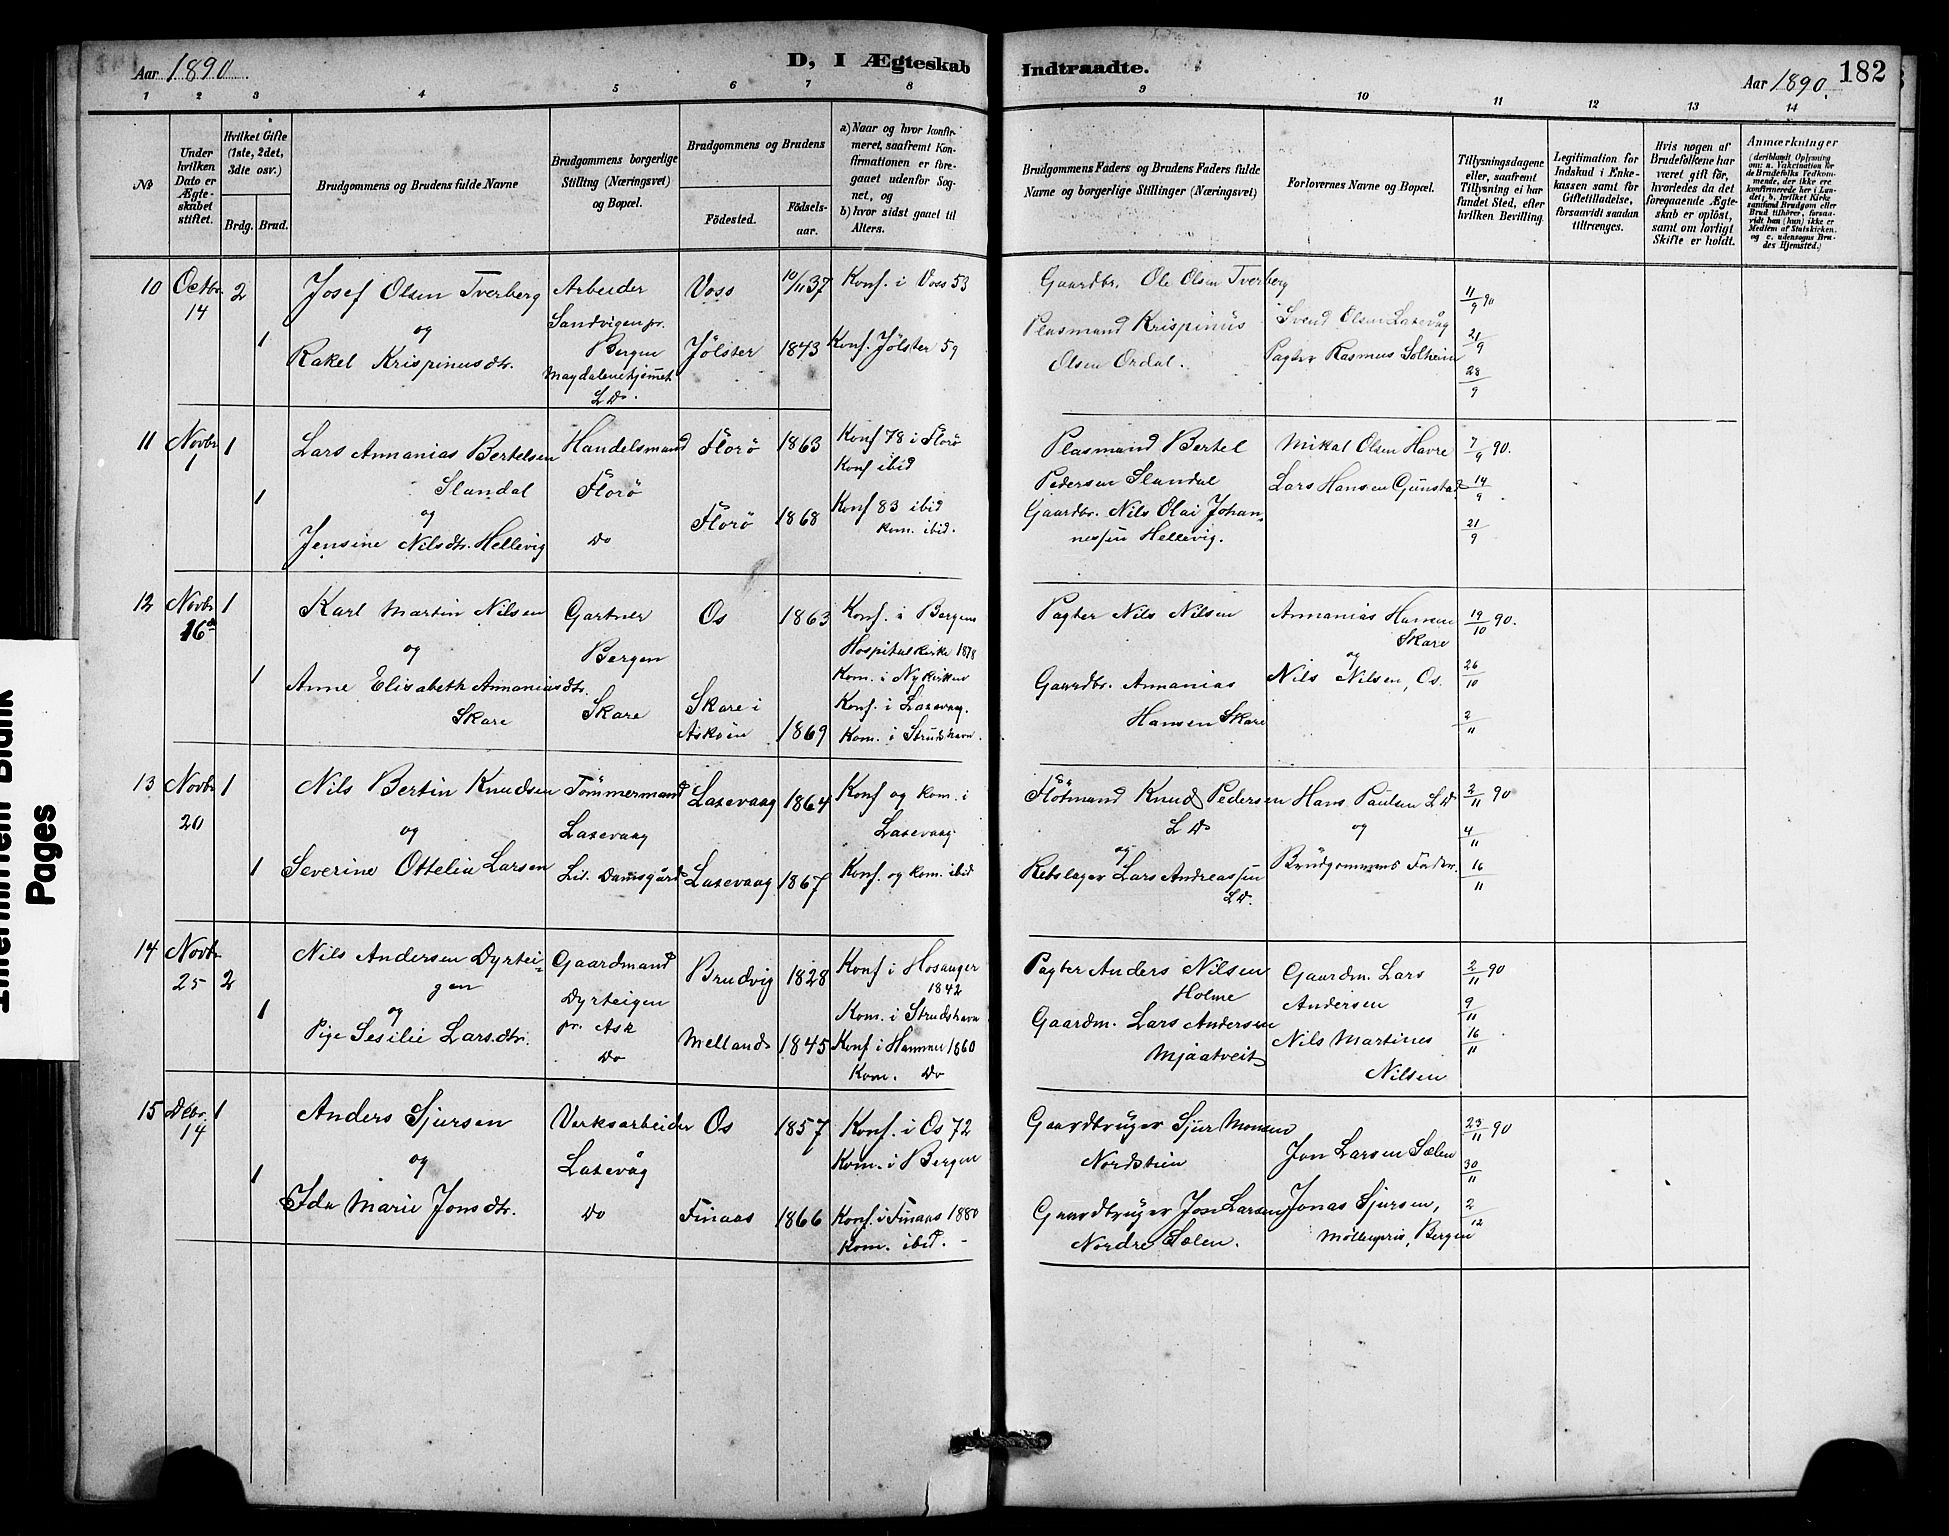 Aar 1890.
D, I Ægteskab
Indtraadte.
Aar 1890.
182
1 2 3 4 5 6 7 8 9 10 11 12 13 14
No
Under hvilken Dato er Ægteskabet stiftet.
Hvilket Gifte (1ste, 2det, 3dte osv.)
Brdg. Brud.
Brudgommens og Brudens fulde Navne
Brudgommens borgerlige Stilling (Næringsvei) og Bopæl.
Brudgommens og Brudens
Fødested.
Fødselsaar.
a) Naar og hvor konfirmeret, saafremt Konfirmationen er foregaaet udenfor Sognet, og
b) hvor sidst gaaet til Alters.
Brudgommens Faders og Brudens Faders fulde Navne og borgerlige Stillinger (Næringsvei)
Forlovernes Navne og Bopæl.
Tillysningsdagene eller, saafremt Tillysning ei har fundet Sted, efter hvilken Bevilling.
Legitimation for Indskud i Enkekassen samt for Giftetilladelse, forsaavidt saadan tiltrænges.
Hvis nogen af Brudefolkene har været gift før, hvorledes da det foregaaende Ægteskab er opløst, samt om lovligt Skifte er holdt.
Anmærkninger
(deriblandt Oplysning om: a. Vakcination for de Brudefolks Vedkommende, der ikke ere konfirmerede her i Landet, b. hvilket Kirkesamfund Brudgom eller Brud tilhører, forsaavidt han (hun) ikke er Medlem af Statskirken, og c. udensogns Brudes Hjemsted.)
10 Octbr. 14 2 1
Josef Olsen Tverberg
og
Rakel Krispinusdtr.
Arbeider
Sandvigen pr.
Bergen
Magdalenehjemmet
L Do.
Voss 10/11 37
Jølster 1843
Konf. i Voss 53
Konf. Jølster 59
Gaardbr. Ole Olsen Tverberg
Plasmand Krispinus
Olsen Ordal.
Svend Olsen Laxevåg
Pagter Rasmus Solheim
11/9 90
21/9
28/9
11 Novbr 1 1 1
Lars Annanias Bertelsen
Standal
og
Jensine Nilsdtr. Hellevig
Handelsmand
Florø
Do
Florø 1863
Florø 1868
Konf 78 i Florø
Konf ibid
Konf 83 ibid
Kom. ibid.
Plasmand Bertel
Pedersen Standal
Gaardbr. Nils Olai Johan-
nessen Hellevig.
Mikal Olsen Havre
Lars Hansen Gunstad
7/9 90.
14/9.
21/9
12 Novbr 16de 1 1
Karl Martin Nilsen
og
Anne Elisabeth Annaniasdtr.
Skare
Gartner
Bergen
Skare
Os 1863
Skare i
Askøen 1869
Konf. i Bergens
Hospitalskirke 1878
Kom. i Nykirken
Konf. i Laxevaag.
Kom. i Strudshavn.
Pagter Nils Nilsen
Gaardbr. Annanias
Hansen Skare
Annanias Hansen
Skare
og
Nils Nilsen, Os.
19/10 90.
26/10
2/11
13 Novbr 20 1 1
Nils Bertin Knudsen
og
Severine Ottelia Larsen
Tømmermand
Laxevaag
Lil. Damsgård
Laxevaag 1864
Laxevaag 1867
Konf og kom. i
Laxevaag.
Konf. og kom. ibid
Flötmand Knud Pedersen
L D
og
Rebslager Lars Andreassen
L D.
Hans Paulsen L D
og
Brudgommens Fader.
2/11 90
4/11
16/11
14 Novbr 25 2 1
Nils Andersen Dyrtei-
gen
og
Pige Sesilie Larsdtr.
Gaardmand
Dyrteigen
pr. Ask
Do
Brudvig 1828
Melland 1845
Konf. i Hosanger
1842
Kom. i Strudshavn
Konf i Hammer 1860
Kom. Do
Pagter Anders Nilsen
Holme
Gaardm. Lars Andersen
Mjaatveit
Gaardm. Lars
Andersen
Nils Martines
Nilsen
2/11 90
9/11
16/11
15 Dcbr. 14 1 1
Anders Sjursen
og
Ida Marie Jonsdtr.
Verksarbeider
Laxevåg
Do
Os 1857
Finaas 1866
Konf. i Os 72
Kom. i Bergen
Konf. i Finaas 1880
Kom. ibid.
Gaardbruger Sjur Monsen
Nordstrien
Gaardbruger Jon Larsen
Nordre Sælen.
Jon Larsen Sælen
Jonas Sjursen,
Møllenpris, Bergen
23/11 90
30/11
2/12
Intermittent Blank
Pages